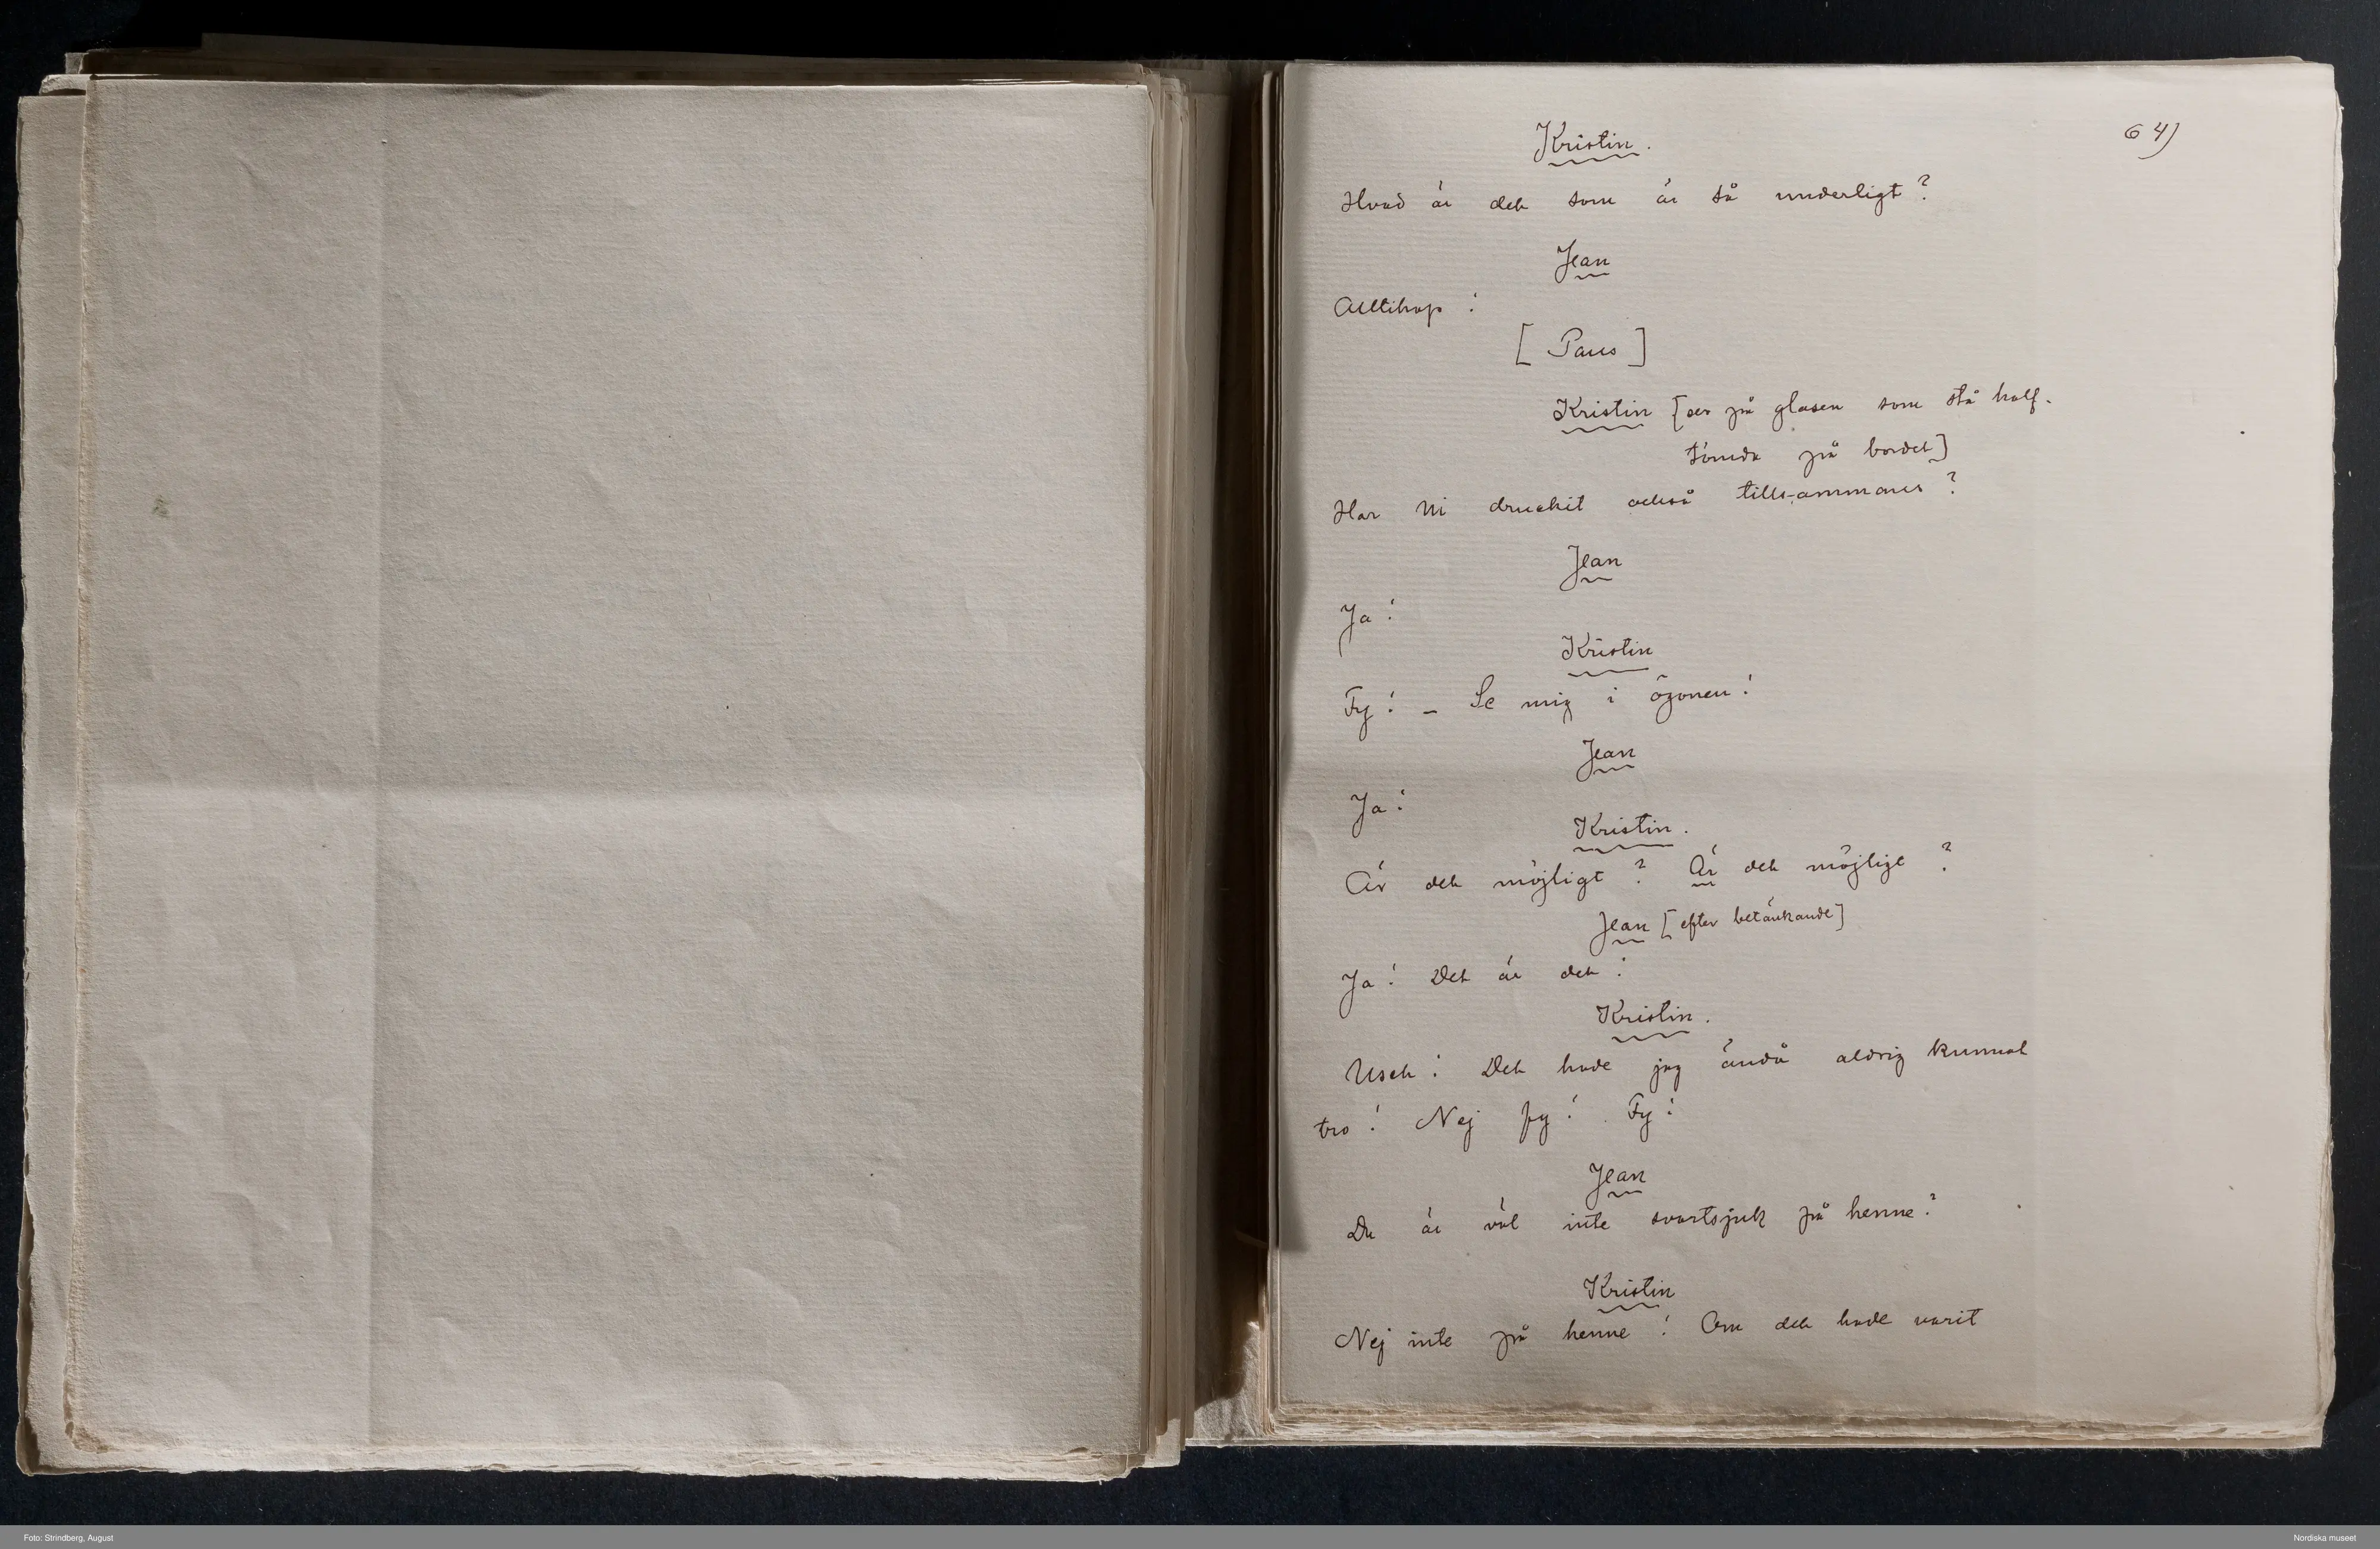 64)
Kristin.
Hvad är det som är så underligt?
Jean
Alltihop!
[Paus]
Kristin [ser på glasen som stå half-
tömda på bordet]
Har Ni druckit också tills-ammans?
Jean
Ja!
Kristin
Fy! – Se mig i ögonen!
Jean
Ja!
Kristin.
Är det möjligt? Är det möjligt?
Jean [efter betänkande]
Ja! Det är det!
Kristin.
Usch! Det hade jag ändå aldrig kunnat
tro! Nej fy! Fy!
Jean
Du är väl inte svartsjuk på henne?
Kristin
Nej inte på henne! Om det hade varit
Foto: Strindberg, August
Nordiska museet